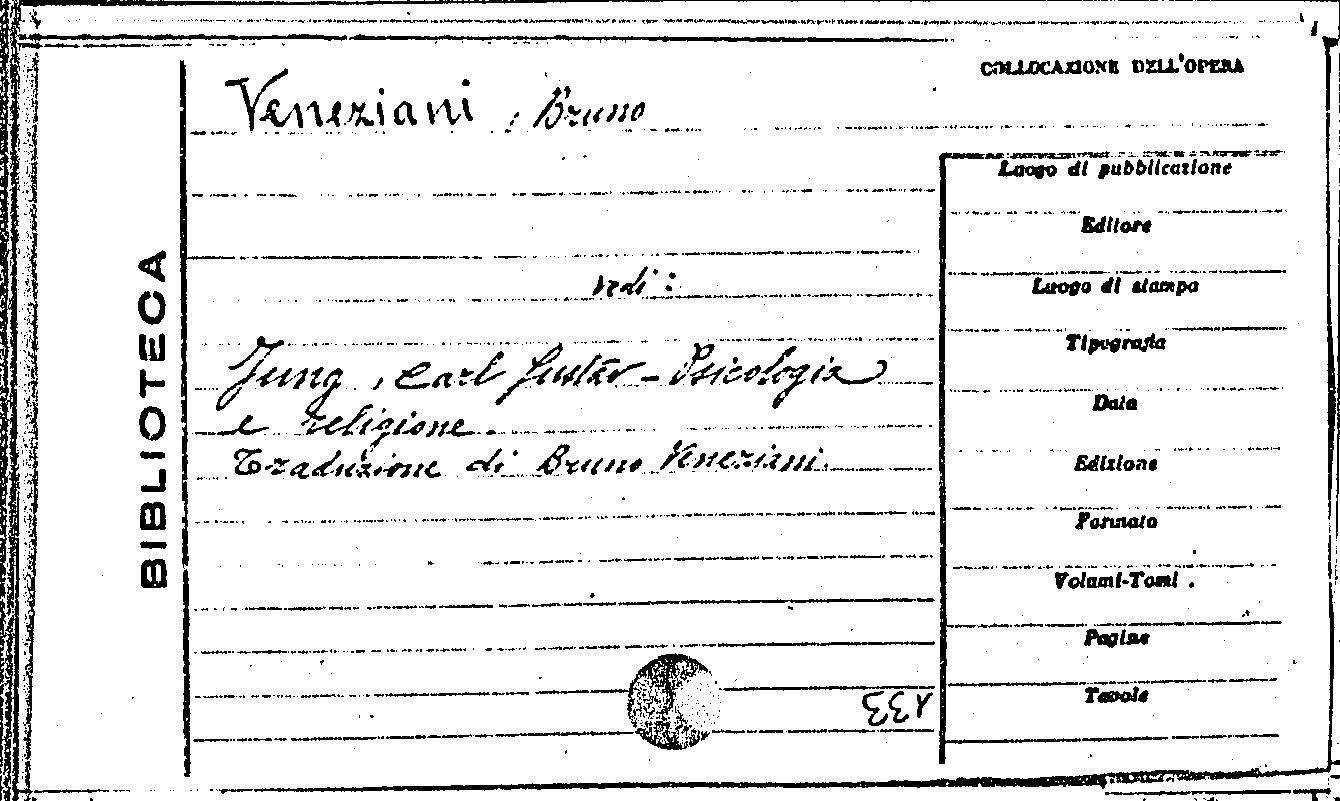 COLLOCAZIONE DELL'OPERA
Veneziani, Bruno
Luogo di pubblicazione
Editore
vedi:
Luogo di stampa
Tipografia
Jung, Carl Gustav - Psicologia
Data
e religione.
Traduzione di Bruno Veneziani.
Edizione
Formato
Volumi-Tomi.
Pagine
Tavole
BIBLIOTECA